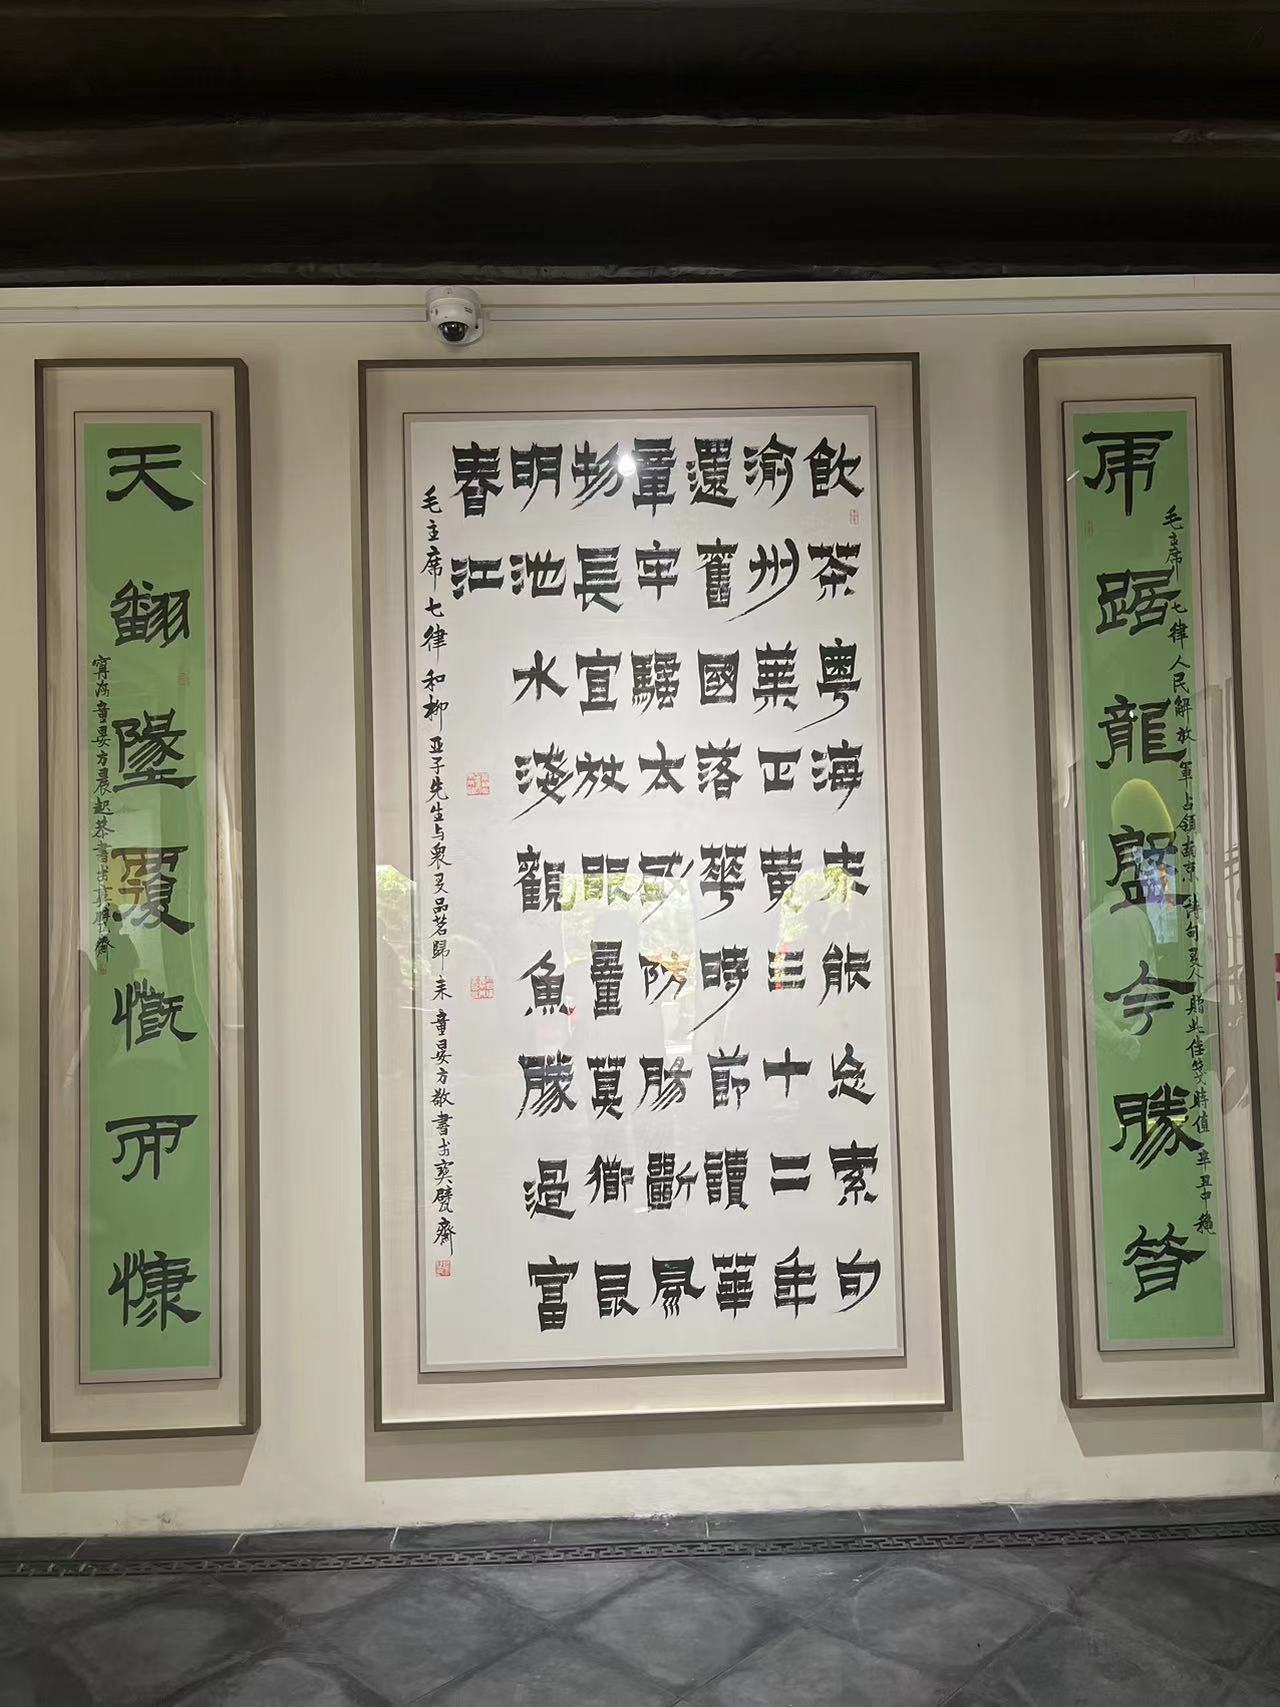 虎踞龍盤今勝昔
毛主席七律人民解放軍占領南京詩句友人贈此佳箋時值辛丑中穐
飲茶粵海未能忘索句
渝州葉正黃三十一年
還舊國落華時節讀華
章牢騷太盛防腸斷風
物長宜放眼量莫衜昆
明池水淺觀魚勝過富
春江
毛主席七律和柳亞子先生与衆友品茗歸来童晏方敬書於寶甓齋
天翻墬覆慨而慷
寧海童晏方晨起恭書於寶甓齋